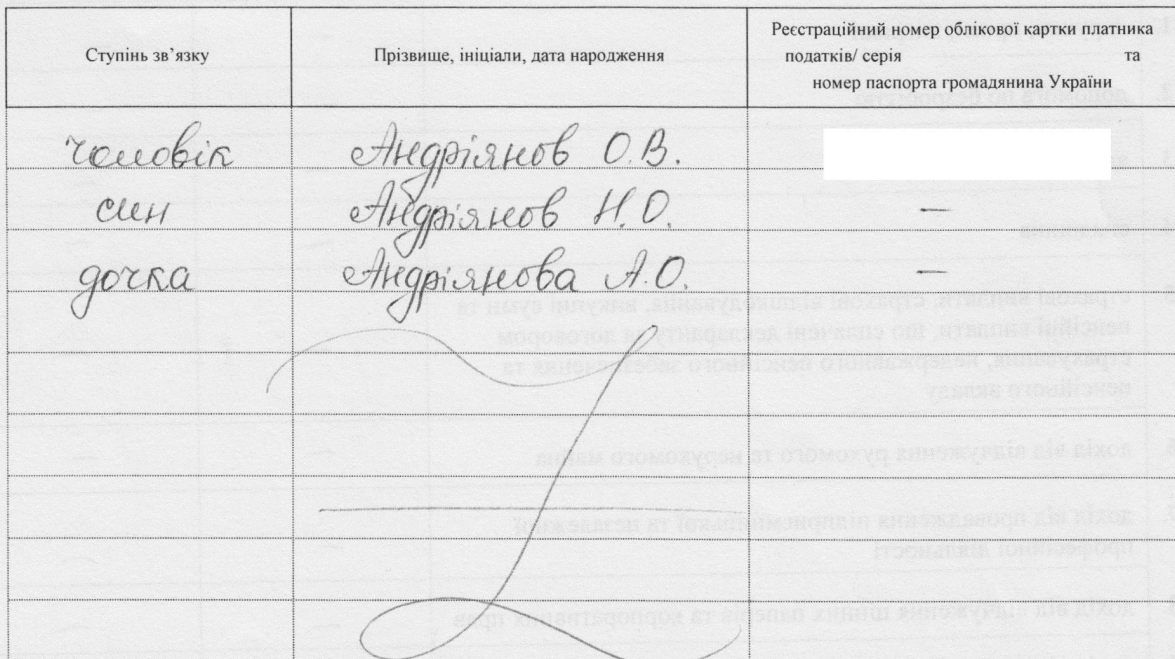 Ступінь зв’язку
Прізвище, ініціали, дата народження
Реєстраційний номер облікової картки платника
податків/ серія та
номер паспорта громадянина України
чоловік Андріянов О.В.
син Андріянов Н.О. —
дочка Андріянова А.О. —